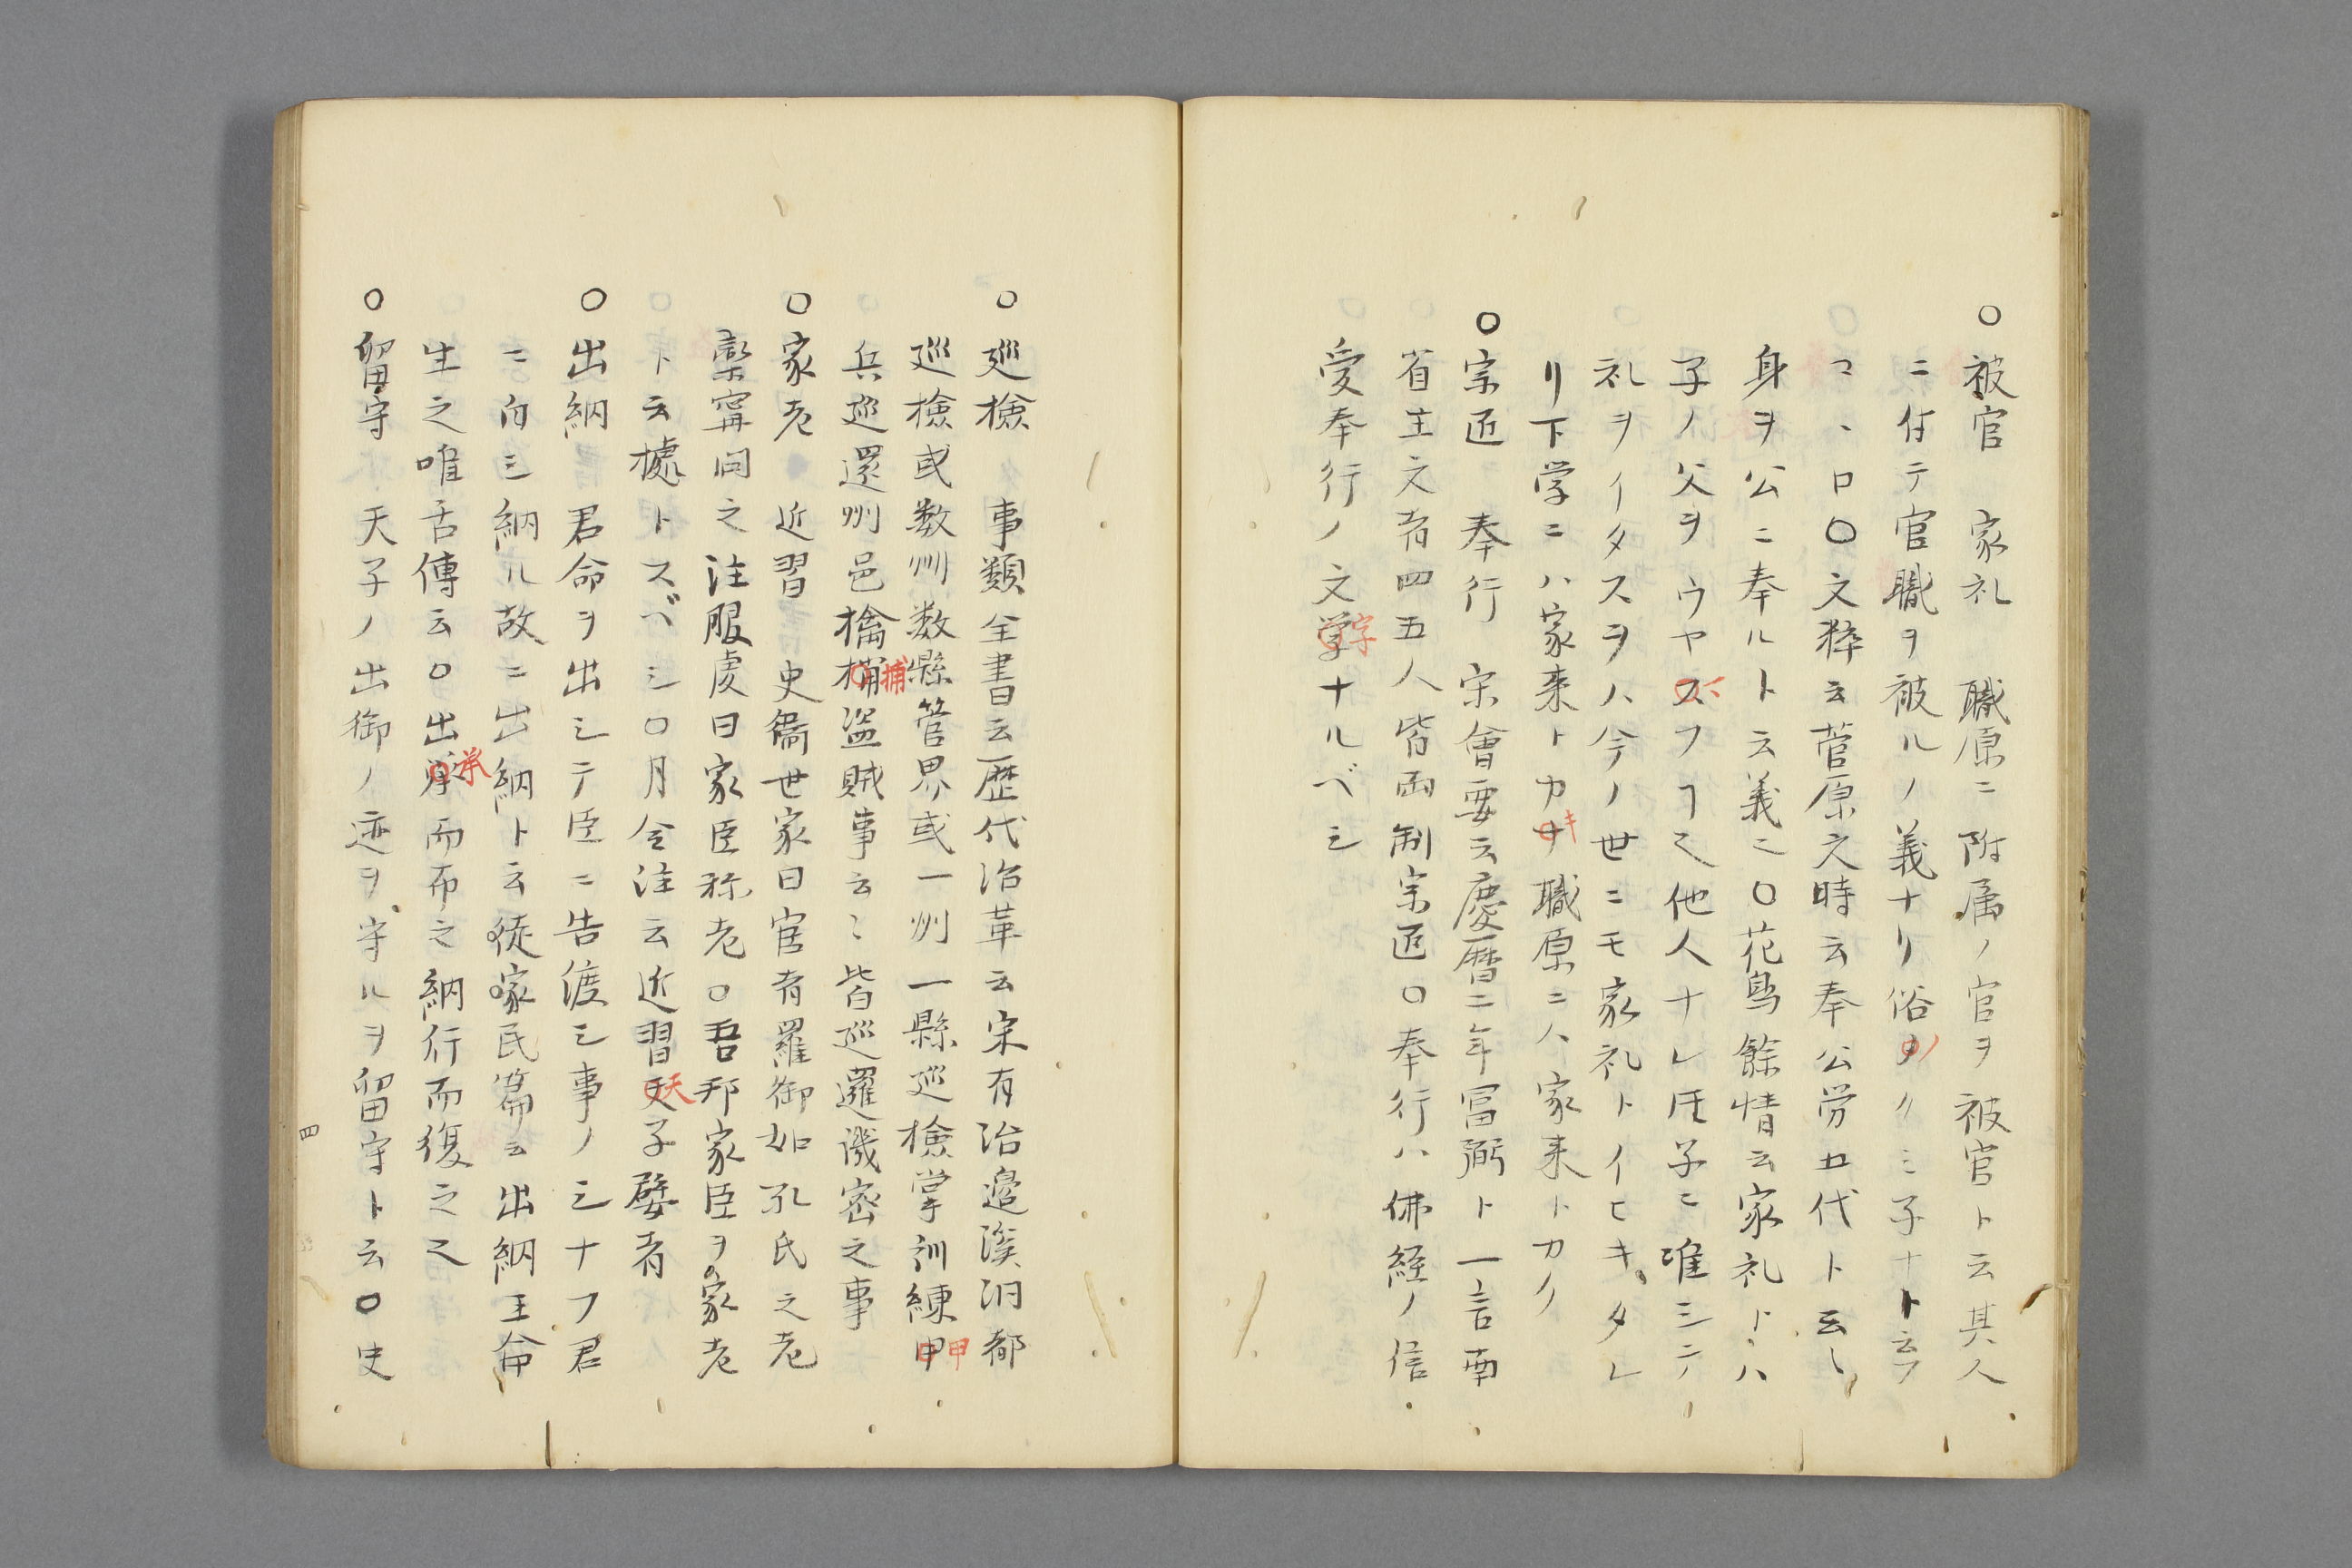 ○被官　家礼　職原ニ附属ノ官ヲ被官ト云其人
ニ付テ官職ヲ被ルノ義ナリ俗ヲノクミ子ナト云フ
コヽロ○文粋云菅原文時云奉公労五代ト云〻
身ヲ公ニ奉ルト云義ニ○花鳥餘情云家礼トハ
子ノ父ヲウヤスフヿ也他人ナレ𪜈子ニ准シテ
礼ヲイタスヲハ今ノ世ニモ家礼トイヒキタレ
リ下学ニハ家来トカキ職原ニハ家来トカク
○宗匠　奉行　宋會要云慶暦二年冨弼ト一言南
省主文者四五人皆両制宗匠○奉行ハ佛経ノ信
受奉行ノ文学字ナルベシ
○巡檢　事類全書云歴代沿革云宋有沿邉溪洞都
巡檢或数州数縣管界或一州一縣巡檢掌訓練甲甲
兵巡邏州邑擒捕捕盗賊事云〻皆巡邏譏密之事
○家老　近習　史衞世家曰宦者羅御如孔氏之老
欒甯问之注服虔曰家臣称老○吾邦家臣ヲ家老
ト云據トスベシ○月令注云近習天天子嬖者
○出納　君命ヲ出シテ臣ニ告渡シ事ノシナフ君
ニ白シ納ル故ニ出納ト云徒家民篇云出納王命
生之唯舌傳云○出承承而布之納行而復之也
○留守　天子ノ出御ノ迹ヲ守ルヲ留守ト云○史
四